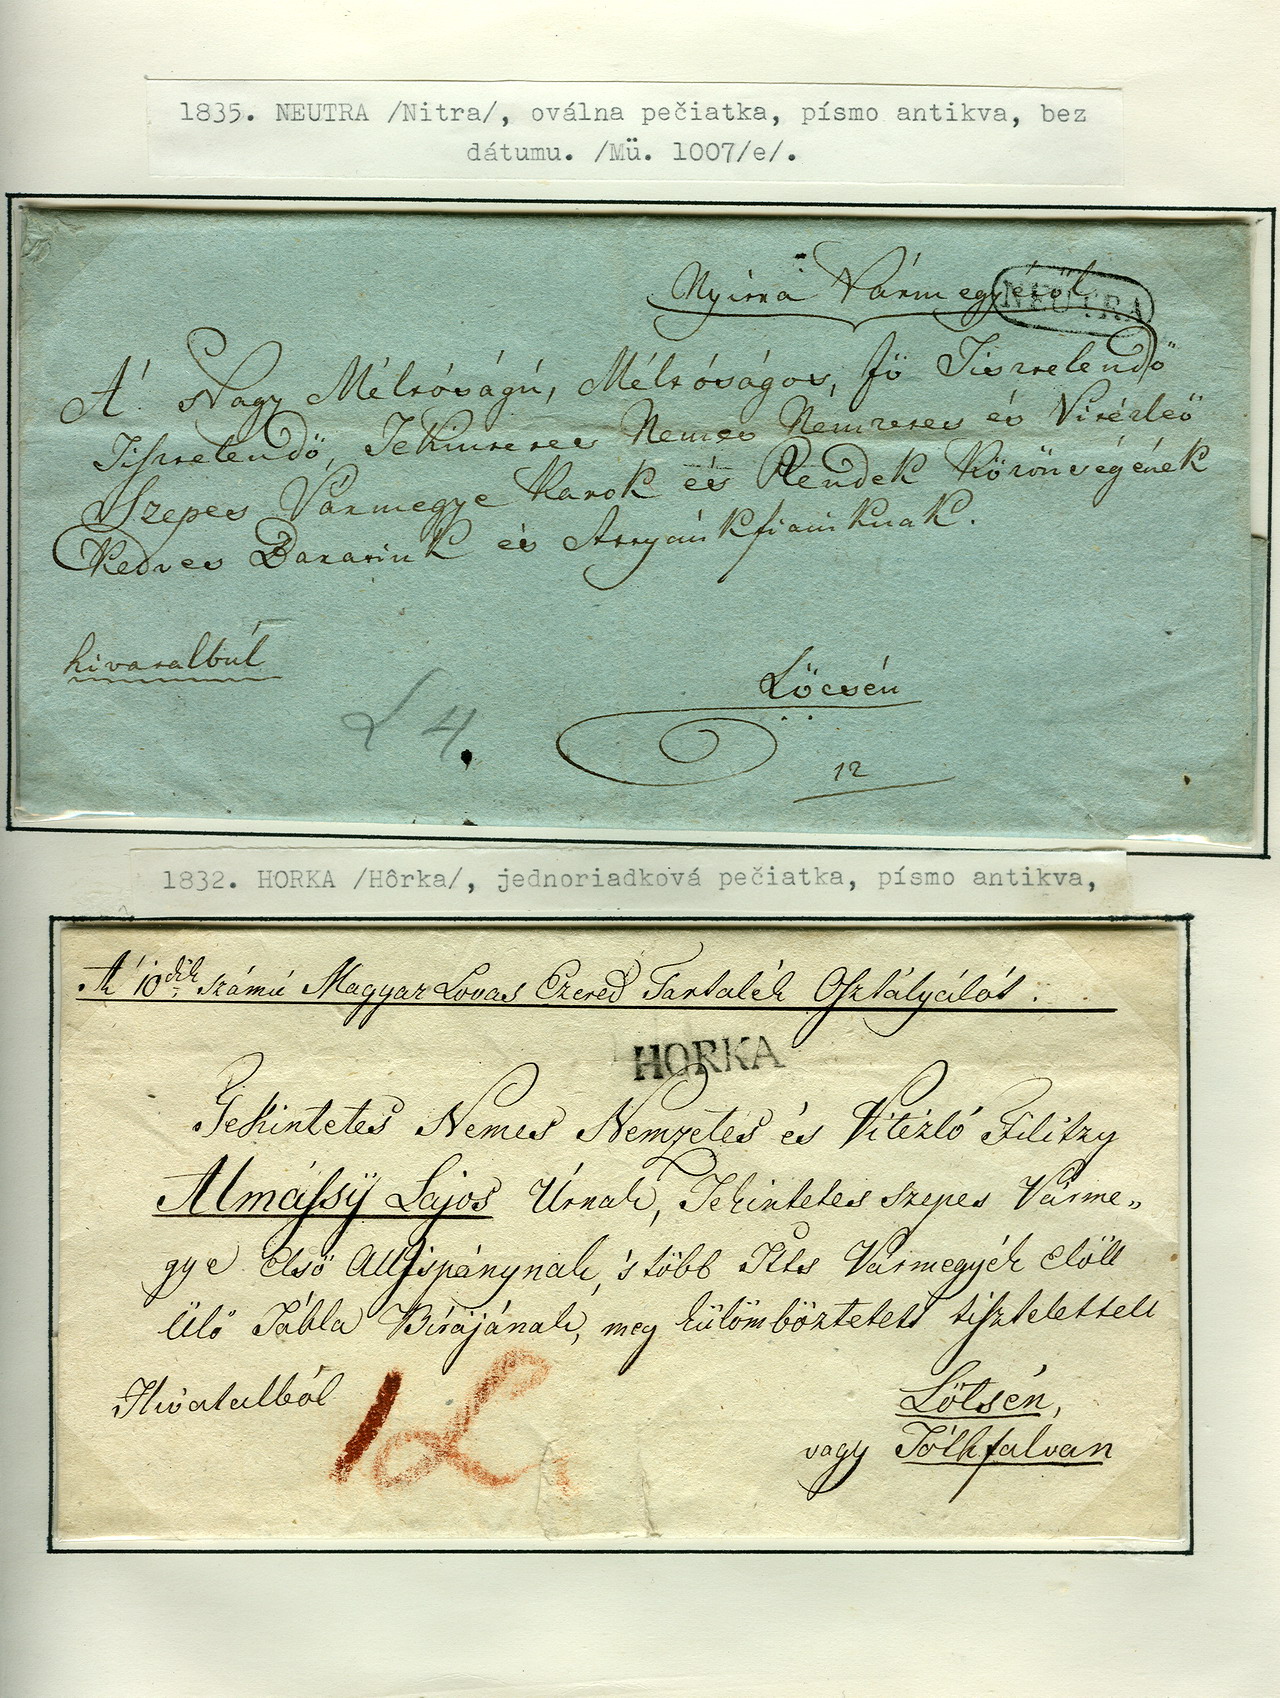 1835. NEUTRA /Nitra/, oválna pečiatka, písmo antikva, bez
dátumu. /Mü. 1007/e/.
Nyitra Vármegyétől
NEUTRA
A' Nagy Méltóságú, Méltóságos, fő Tisztelendő
Tisztelendő, Tekintetes Nemes Nemzetes és Vitézlő
Szepes Vármegye Karok és Rendek Közönségének
Kedves Barátink és Attyánkfiainknak.
hivatalbúl
Lőcsén
4
12
1832. HORKA /Hôrka/, jednoriadková pečiatka, písmo antikva,
A' 10dik számú Magyar Lovas Ezered Tartalék Osztályától.
HORKA
Tekintetes Nemes Nemzetes és Vitézlő
Almássÿ Lajos Úrnak, Tekintetes Szepes Várme„
gye első Allispánynak, 's több Ttts Vármegyék előtt
Ülő Tábla Birájának, meg külömböztetett tisztelettell
Hivatalból
Lőtsén,
vagy Tóthfalvan